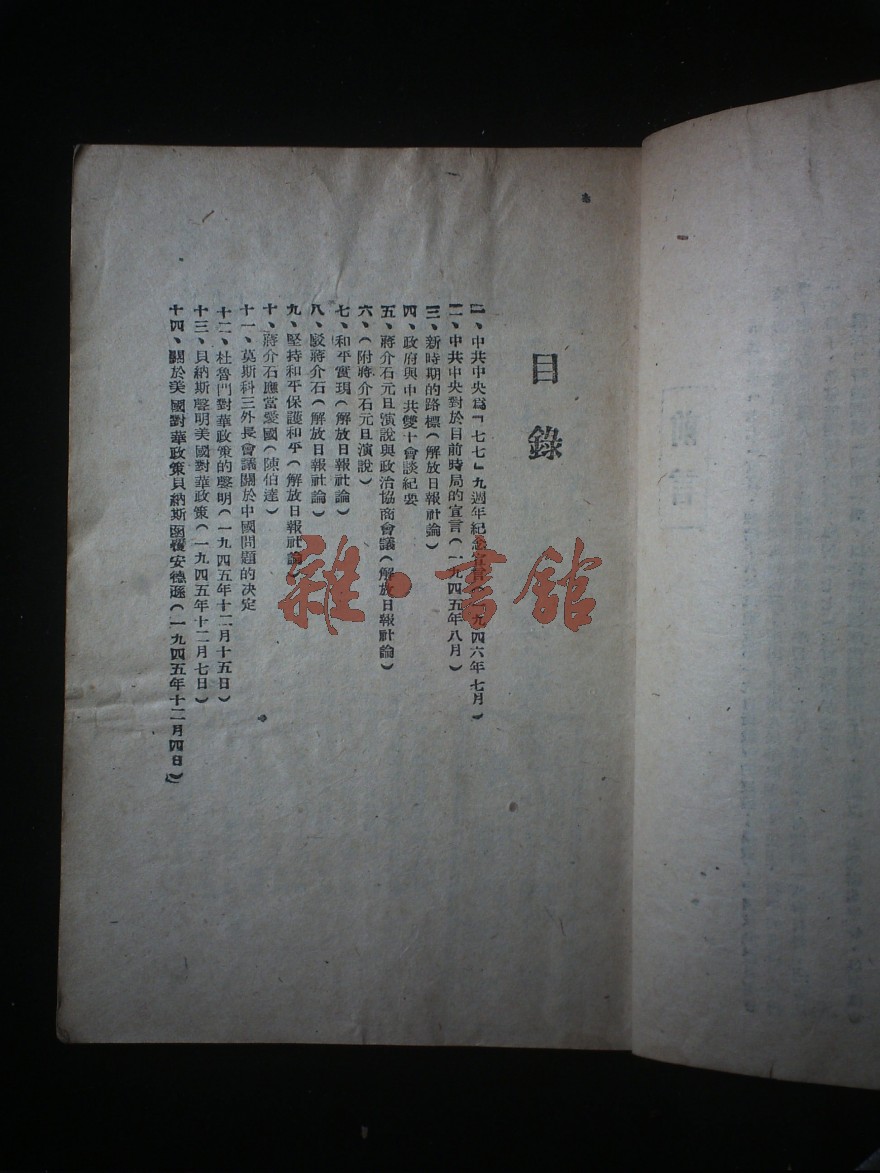 目錄
一、中共中央爲「七七」九週年紀念宣言(一九四六年七月)
二、中共中央對於目前時局的宣言(一九四五年八月)
三、新時期的路標(解放日報社論)
四、政府與中共雙十會談紀要
五、蔣介石元旦演說與政治協商會議(解放日報社論)
六、(附蔣介石元旦演說)
七、和平實現(解放日報社論)
八、駁蔣介石(解放日報社論)
九、堅持和平保護和平(解放日報社論)
十、蔣介石應當愛國(陳伯達)
十一、莫斯科三外長會議關於中國問題的决定
十二、杜魯門對華政策的聲明(一九四五年十二月十五日)
十三、貝納斯聲明美國對華政策(一九四五年十二月七日)
十四、關於美國對華政策貝納斯函覆安德遜(一九四五年十二月四日)
雜·書館